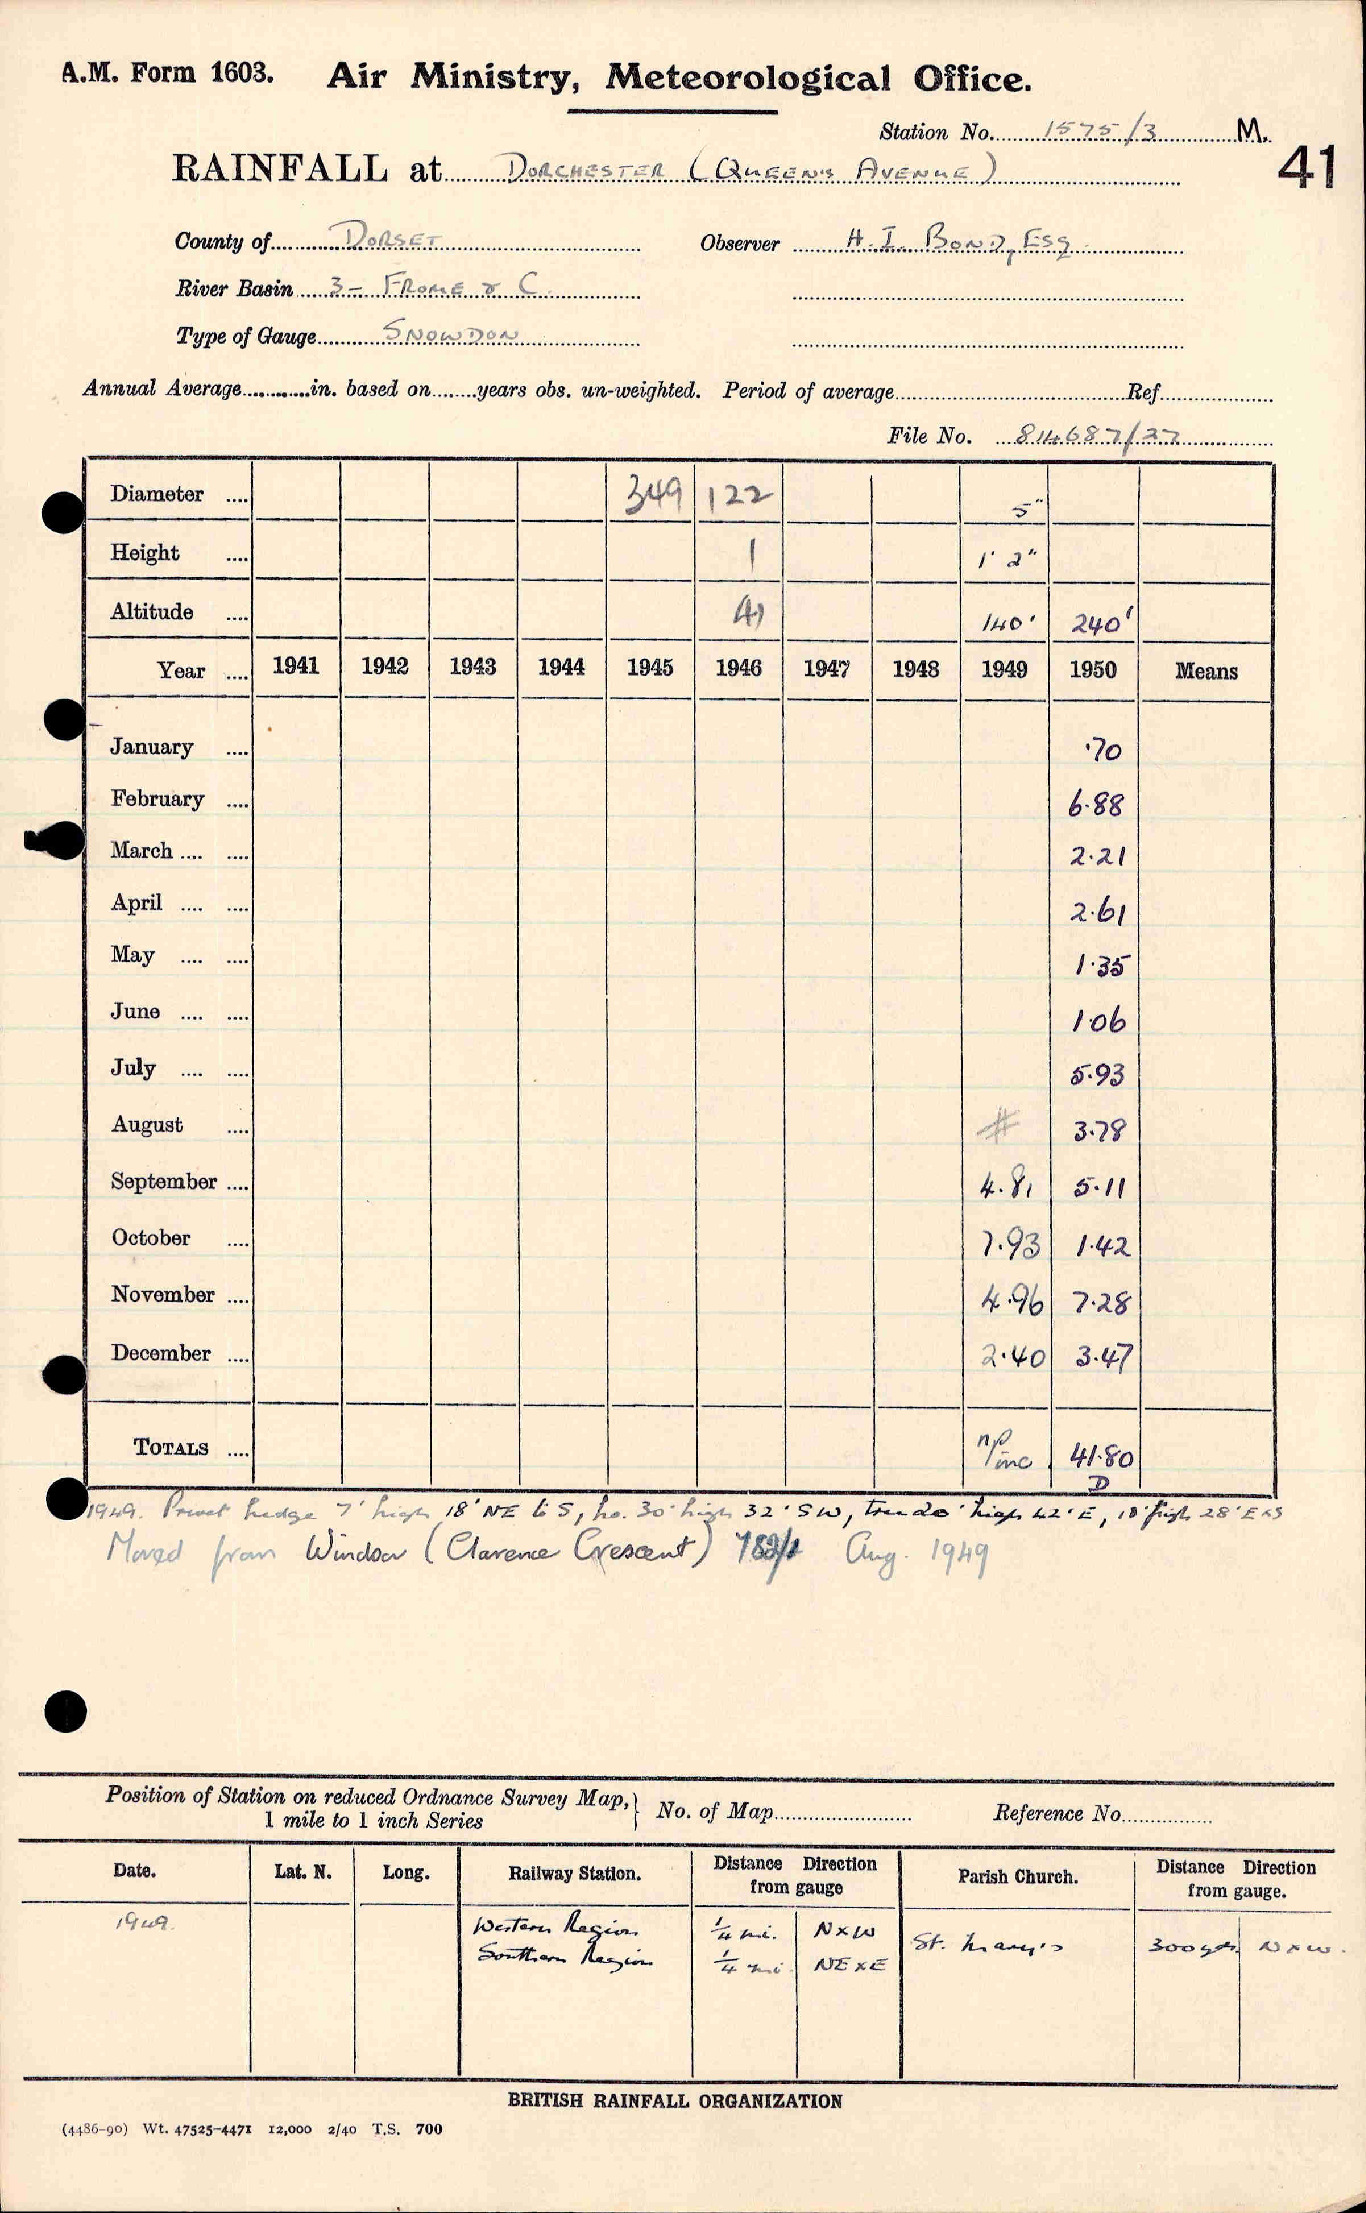 A.M. Form 1603. Air Ministry, Meteorological Office.
Station No. 1575/3 M.
41
RAINFALL at DORCHESTER (QUEEN'S AVENUE)
County of DORSET Observer H. I. BOND, ESQ
River Basin 3 - FROME & C.
Type of Gauge SNOWDON
Annual Average............in. based on.......years obs. un-weighted. Period of average.......... Ref..........
File No. 814687/27
Diameter .... 349 122 5"
Height .... 1 1' 2"
Altitude .... 41 140' 240'
Year .... 1941 1942 1943 1944 1945 1946 1947 1948 1949 1950 Means
January .... ·70
February .... 6·88
March .... .... 2·21
April .... .... 2·61
May .... .... 1·35
June .... .... 1·06
July .... .... 5·93
August .... # 3·78
September .... 4·81 5·11
October .... 7·93 1·42
November .... 4·96 7·28
December .... 2·40 3·47
TOTALS .... n/p inc 41·80
D
1949. Privet hedge 7' high 18' NE to S, ho. 30' high 32' SW, tree 20' high 42' E, 18' high 28' E x S
Moved from Windsor (Clarence Crescent) Aug. 1949
Position of Station on reduced Ordnance Survey Map, 1 mile to 1 inch Series } No. of Map.......... Reference No..........
Date. Lat. N. Long. Railway Station. Distance Direction from gauge Parish Church. Distance Direction from gauge.
1949. Western Region 1/4 mi. N x W St. Mary's 300 yds. N x W.
Southern Region 1/4 mi NE x E
BRITISH RAINFALL ORGANIZATION
(4486-90) Wt. 47525-4471 12,000 2/40 T.S. 700